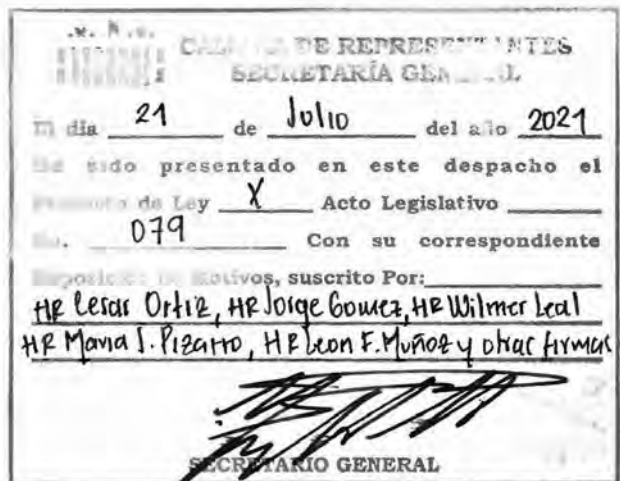 DE REPRESENTANTES
SECRETARÍA GENERAL
El día 21 de Julio del año 2021
Ha sido presentado en este despacho el
Proyecto de Ley X Acto Legislativo
No. 079 Con su correspondiente
Exposición de Motivos, suscrito Por:
HR Cesar Ortiz, HR Jorge Gomez, HR Wilmer Leal
HR Maria J. Pizarro, HR Leon F. Muñoz y otras firmas
SECRETARIO GENERAL